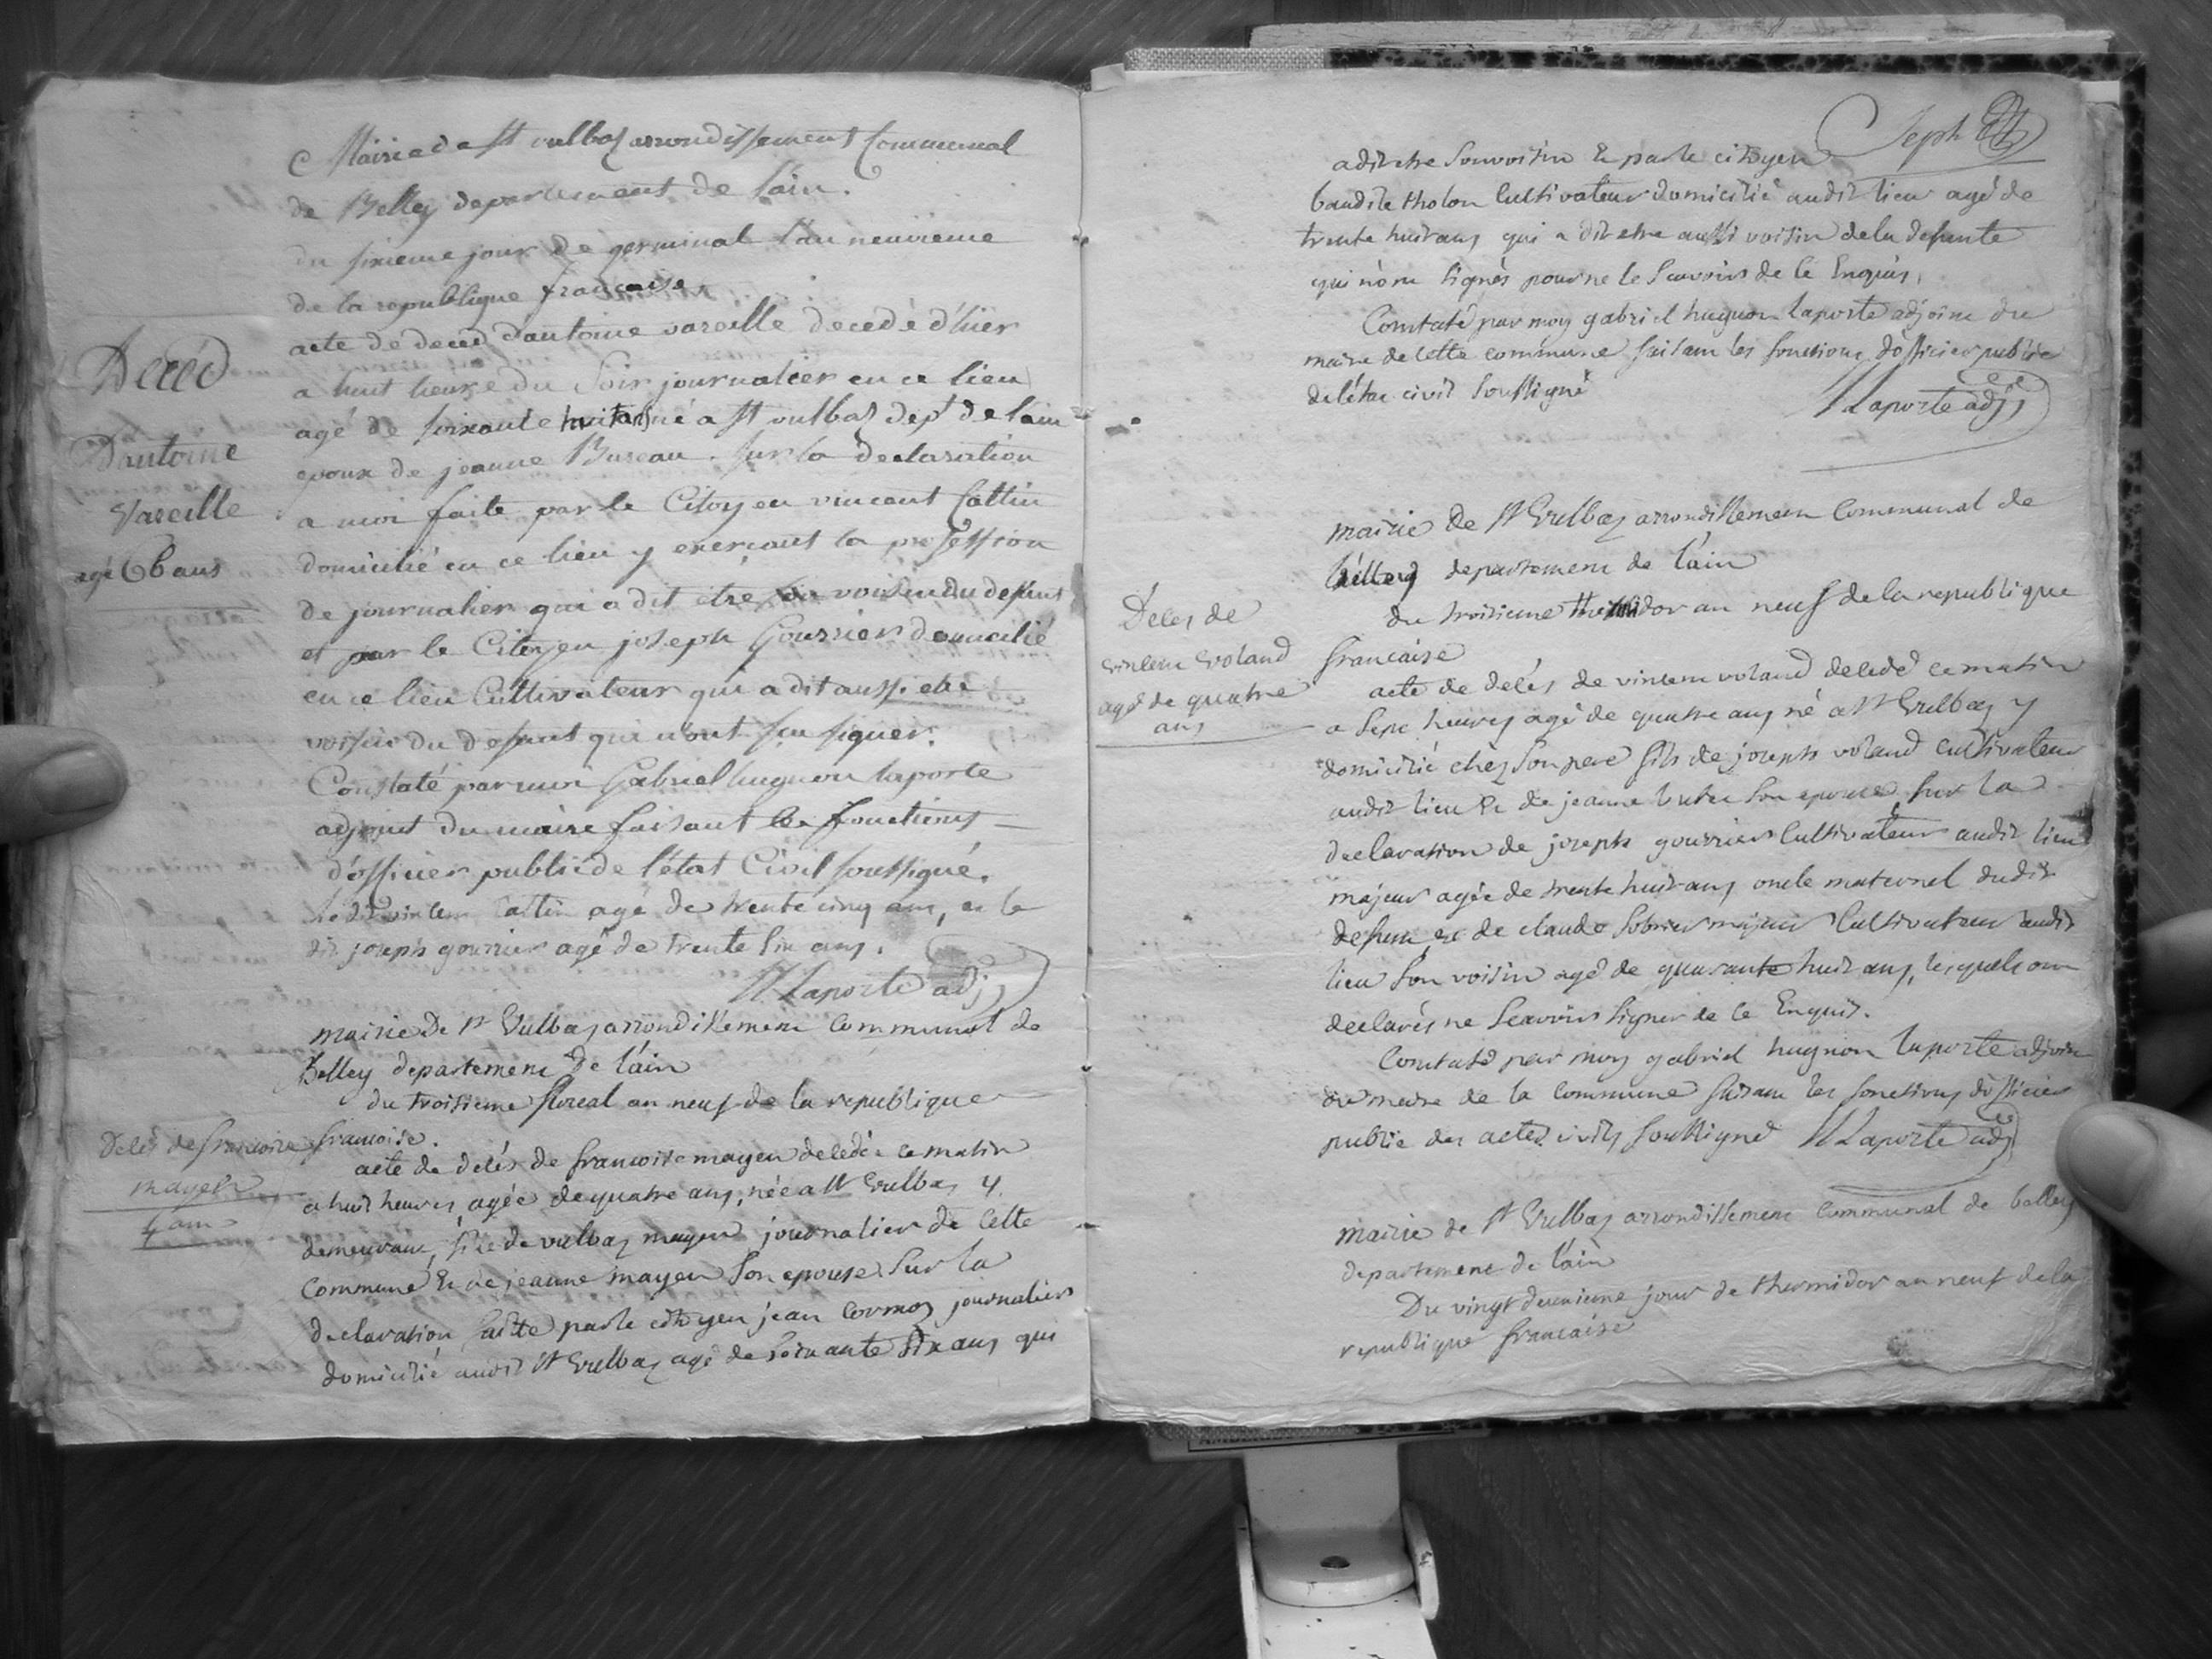 Mairie de St vulbaz arrondissement Communal
de Belley departement de lain.
du sixieme jour de germinal l'an neuvieme
de la republique francaise
acte de deced d'antoine vareille decedé d'hier
a huit heure du Soir journalier en ce lieu
agé de soixante huit ans né a St vulbaz dept de lain
epoux de jeanne Buseau. sur la declaration
a moi faite par le Citoyen vincent Cattin
domicilié en ce lieu y exercant la profession
de journalier qui a dit etre voisin du defunt
et par le Citoyen joseph Gourrier domicilié
en ce lieu Cultivateur qui a dit aussi etre
voisin du defunt qui n'ont su signer.
Constaté par moi Gabriel hugnon laporte
adjoint du maire faisant les fonctions
d'officier public de l'état Civil soussigné.
ledit vincen Cattin agé de trente cinq ans, et le
dit joseph gourrier agé de trente six ans.
Laporte adj
Deced
D'antoine
Vareille
agé 68 ans
mairie de St Vulbaz arrondissemen communal de
Belley departement de l'ain
du troisieme floreal an neuf de la republique
francoise.
Delés de francoise
mayen
4 ans
acte de delés de francoise mayen deledée ce matin
a huit heures, agée de quatre ans, née a St Vulbaz y
demeurant, fille de vulbaz mayen journalier de Cette
Commune et de jeanne mayen Son epouse Sur la
declaration faitte par le citoyen jean Cormoz journalier
domicilié audit St Vulbaz agé de Soixante Six ans qui
Seph
a dit etre Son voisin et par le citoyen
baudile tholon Cultivateur domicilié audit lieu agé de
trente huit ans qui a dit etre aussi voisin de la defunte
qui n'ont signés pour ne le Scavoirs de ce Enquis,
Constaté par moy gabriel hugnon laporte adjoint du
maire de Cette commune faisant les fonctions d'officier public
de l'état civil Soussigné
Laporte adj
mairie de St Vulbaz arrondissemen Communal de
belley departement de l'ain
du troisieme thermidor an neuf de la republique
francaise
Delés de
vinlem voland
agé de quatre
ans
acte de delés de vincem voland deledé ce matin
a Sept heures agé de quatre ans né a St Vulbaz y
domicilié chez Son pere fils de joseph voland cultivateur
audit lieu et de jeanne Son epouse, Sur la
declaration de joseph gourrier Cultivateur audit lieu
majeur agée de trente huit ans oncle maternel dudit
defunt et de claude Sobrier majeur Cultivateur audit
lieu Son voisin agé de quarante huit ans, lesquels ont
declarés ne Scavoirs Signer de ce Enquis.
Constaté par moy gabriel hugnon laporte adjoin
du maire de la Commune faisant les fonctions d'officier
public des actes civils Soussigné Laporte adj
mairie de St Vulbaz arrondissement Communal de belley
departement de l'ain
Du vingt deuxieme jour de thermidor an neuf de la
republique francaise